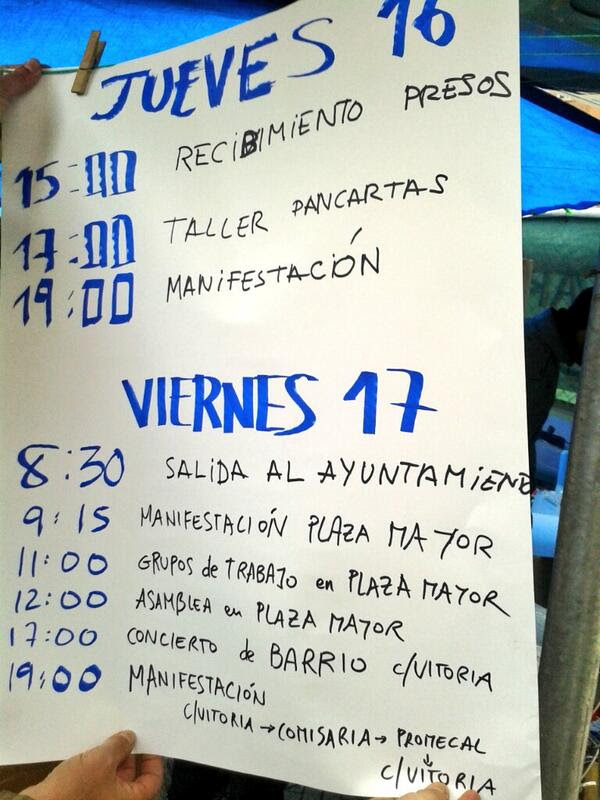 JUEVES 16
15:00 RECIBIMIENTO PRESOS
17:00 TALLER PANCARTAS
19:00 MANIFESTACIÓN
VIERNES 17
8:30 SALIDA AL AYUNTAMIENTO
9:15 MANIFESTACIÓN PLAZA MAYOR
11:00 GRUPOS de TRABAJO en PLAZA MAYOR
12:00 ASAMBLEA en PLAZA MAYOR
17:00 CONCIERTO de BARRIO C/VITORIA
19:00 MANIFESTACIÓN
C/VITORIA → COMISARIA → PROMECAL
↓
C/VITORIA